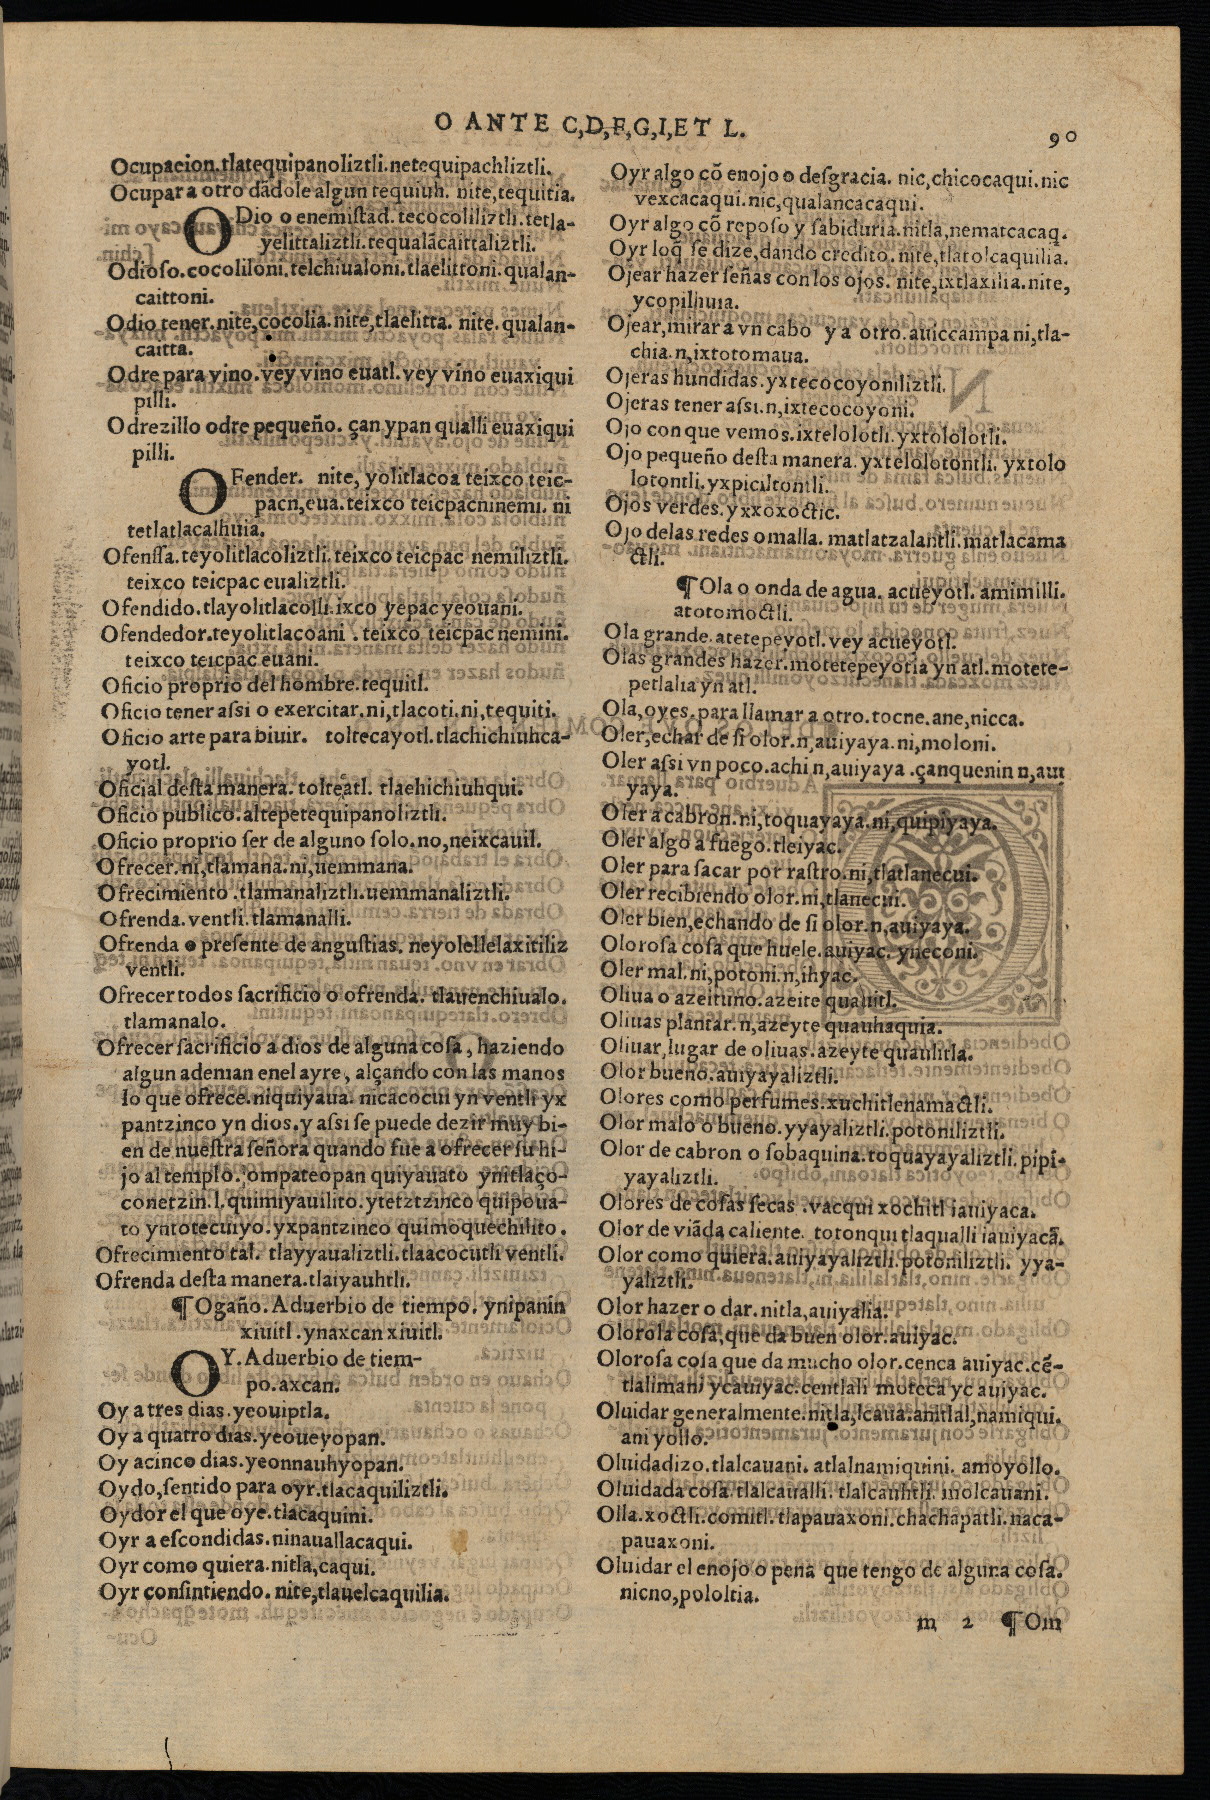 O ANTE C,D,F,G,I,ET L.
90
Ocupacion.tlatequipanoliztli.netequipachliztli.
Ocupar a otro dãdole algun tequiuh. nite,tequitia.
ODio o enemiſtad.tecocoliliztli.tetla-
yelittaliztli.tequalãcaittaliztli.
Odioſo.cocoliloni.telchiualoni.tlaelittoni.qualan-
caittoni.
Odio tener.nite,cocolia.nite,tlaelitta. nite.qualan-
caitta.
Odre para vino.vey vino euatl.vey vino euaxiqui
pilli.
Odrezillo odre pequeño. çan ypan qualli euaxiqui
pilli.
OFender. nite, yolitlacoa teixco teic-
pacn,eua.teixco teicpacninemi. ni
tetlatlacalhuia.
Ofenſſa.teyolitlacoliztli.teixco teicpac nemiliztli.
teixco teicpac eualiztli.
Ofendido.tlayolitlacolli.ixco yepac yeouani.
Ofendedor.teyolitlacoani . teixco teicpac nemini.
teixco teicpac euani.
Oficio proprio del hombre.tequitl.
Oficio tener aſsi o exercitar.ni,tlacoti.ni,tequiti.
Oficio arte para biuir. toltecayotl.tlachichiuhca-
yotl.
Oficial deſta manera. toltecatl. tlachichiuhqui.
Oficio publico.altepetequipanoliztli.
Oficio proprio ſer de alguno ſolo.no,neixcauil.
Ofrecer.ni,tlamana.ni,uemmana.
Ofrecimiento .tlamanaliztli.uemmanaliztli.
Ofrenda.ventli.tlamanalli.
Ofrenda o preſente de anguſtias. neyolellelaxitiliz
ventli.
Ofrecer todos ſacrificio o ofrenda. tlauenchiualo.
tlamanalo.
Ofrecer ſacrificio a dios de alguna coſa , haziendo
algun ademan enel ayre , alçando con las manos
lo que ofrece.niquiyaua. nicacocui yn ventli yx
pantzinco yn dios.y aſsi ſe puede dezir muy bi-
en de nueſtra ſeñora quando fue a ofrecer ſu hi-
jo al templo. ompateopan quiyauato ynitlaço-
conetzin.l.quimiyauilito.ytetztzinco quipoua-
to yntotecuiyo.yxpantzinco quimoquechilito.
Ofrecimiento tal. tlayyaualiztli.tlaacocutli ventli.
Ofrenda deſta manera.tlaiyauhtli.
¶ Ogaño.Aduerbio de tiempo. ynipanin
xiuitl .ynaxcan xiuitl.
OY.Aduerbio de tiem-
po.axcan.
Oy a tres dias.yeouiptla.
Oy a quatro dias.yeoueyopan.
Oy acinco dias.yeonnauhyopan.
Oydo,ſentido para oyr.tlacaquiliztli.
Oydor el que oye.tlacaquini.
Oyr a eſcondidas.ninauallacaqui.
Oyr como quiera.nitla,caqui.
Oyr conſintiendo. nite,tlauelcaquilia.
Oyr algo cõ enojo o deſgracia. nic,chicocaqui.nic
vexcacaqui.nic,qualancacaqui.
Oyr algo cõ repoſo y ſabiduria.nitla,nematcacaq̃.
Oyr loq̃ ſe dize,dando credito. nite,tlatolcaquilia.
Ojear hazer ſeñas con los ojos. nite,ixtlaxilia.nite,
ycopilhuia.
Ojear,mirar a vn cabo y a otro.auiccampa ni,tla-
chia.n,ixtotomaua.
Ojeras hundidas.yxtecocoyoniliztli.
Ojeras tener aſsi.n,ixtecocoyoni.
Ojo con que vemos.ixtelolotli.yxtololotli.
Ojo pequeño deſta manera. yxtelolotontli. yxtolo
lotontli.yxpiciltontli.
Ojos verdes.yxxoxoctic.
Ojo delas redes o malla. matlatzalantli.matlacama
ctli.
¶ Ola o onda de agua. acueyotl. amimilli.
atotomoctli.
Ola grande.atetepeyotl.vey acueyotl.
Olas grandes hazer.motetepeyotia yn atl.motete-
petlalia yn atl.
Ola,oyes.para llamar a otro.tocne.ane,nicca.
Oler,echar de ſi olor.n,auiyaya.ni,moloni.
Oler aſsi vn poco.achi n,auiyaya .çanquenin n,aui
yaya.
Oler a cabron.ni,toquayaya.ni,quipiyaya.
Oler algo a fuego.tleiyac.
Oler para ſacar por raſtro.ni,tlatlanecui.
Oler recibiendo olor.ni,tlanecui.
Oler bien,echando de ſi olor.n,auiyaya.
Oloroſa coſa que huele.auiyac. yneconi.
Oler mal.ni,potoni.n,ihyac.
Oliua o azeituno.azeite quauitl.
Oliuas plantar.n,azeyte quauhaquia.
Oliuar,lugar de oliuas.azeyte quauhtla.
Olor bueno.auiyayaliztli.
Olores como perfumes.xuchitlenamactli.
Olor malo o bueno.yyayaliztli.potoniliztli.
Olor de cabron o ſobaquina.toquayayaliztli.pipi-
yayaliztli.
Olores de coſas ſecas .vacqui xochitl iauiyaca.
Olor de viãda caliente. totonqui tlaqualli iauiyacã.
Olor como quiera.auiyayaliztli.potoniliztli. yya-
yaliztli.
Olor hazer o dar.nitla,auiyalia.
Oloroſa coſa,que da buen olor.auiyac.
Oloroſa coſa que da mucho olor.cenca auiyac.cẽ-
tlalimani ycauiyac.centlali moteca yc auiyac.
Oluidar generalmente.nitla,lcaua.anitlal,namiqui.
ani yollo.
Oluidadizo.tlalcauani. atlalnamiquini. amoyollo.
Oluidada coſa.tlalcaualli. tlalcauhtli. molcauani.
Olla.xoctli.comitl.tlapauaxoni.chachapatli.naca-
pauaxoni.
Oluidar el enojo o pena que tengo de alguna coſa.
nicno,pololtia.
m 2 ¶ Om